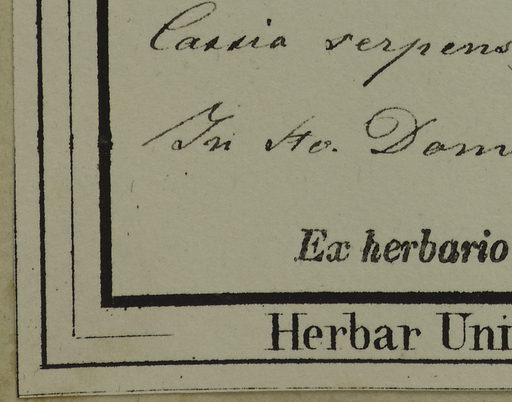 Cassia serpens
In Sto. Dom
Ex herbario
Herbar Uni